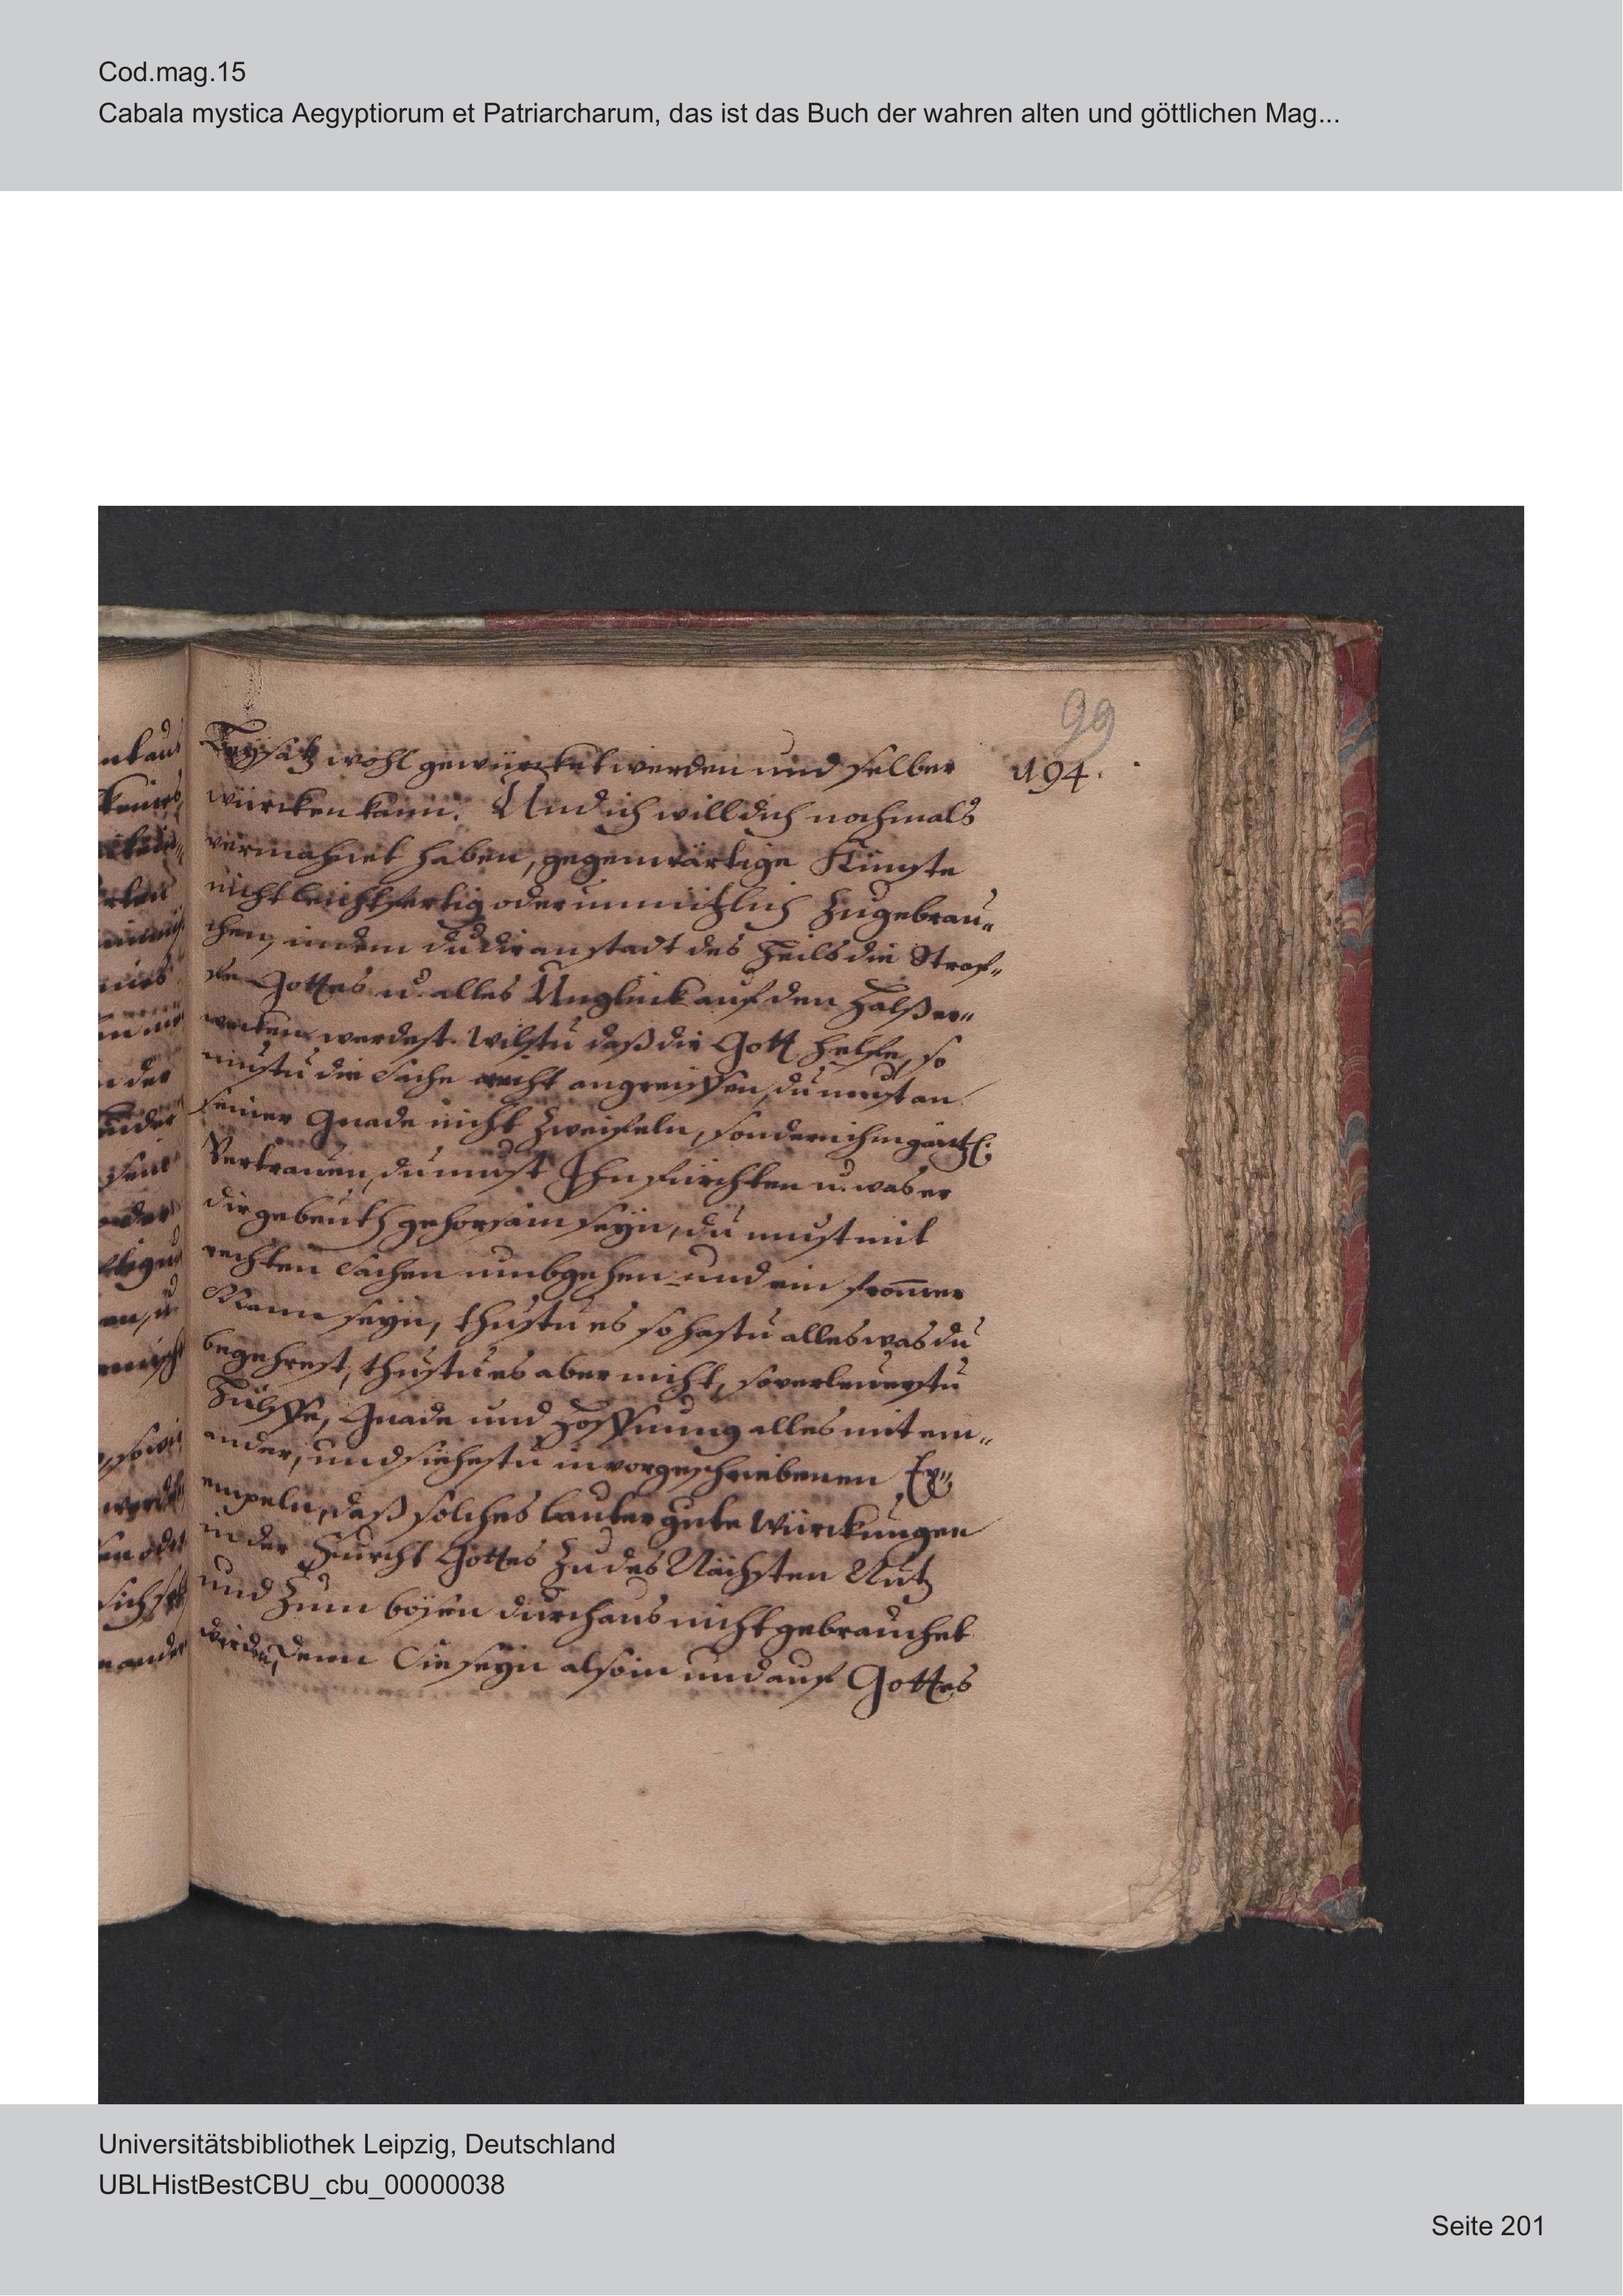 Cod.mag.15
Cabala mystica Aegyptiorum et Patriarcharum, das ist das Buch der wahren alten und göttlichen Mag...
99
194.
wohl gewürcket werden und selber
würcken kann. Und ich will dich nochmals
vermahnet haben, gegenwärtige Künste
nicht leichtfertig oder unnützlich zugebrau„
chen, indem du dir anstadt des Heils die Straf„
fe Gottes u. alles Unglück auf den Halß er„
wecken werdest. Wilstu daß dir Gott helffe, so
mustu die Sache recht angreiffen, du must an
seiner Gnade nicht zweifeln, sondern ihm gäntzl.
Vertrauen, du must Ihn fürchten u. was er
dir gebeuth gehorsam seyn, du must mit
rechten Sachen umbgehen und ein fro͞mer
Mann seyn, thustu es so hastu alles was du
begehrest, thustu es aber nicht, so verleurestu
Hülffe, Gnade und Hoffnung alles mit ein„
ander, und siehestu in vorgeschriebenen Ex„
empeln, daß solches lauter gute Würckungen
in der Furcht Gottes zu des Nächsten Nutz
und zum bösen durchaus nicht gebrauchet
werden, denn Sie seyn also in und auf Gottes
Universitätsbibliothek Leipzig, Deutschland
UBLHistBestCBU_cbu_00000038
Seite 201